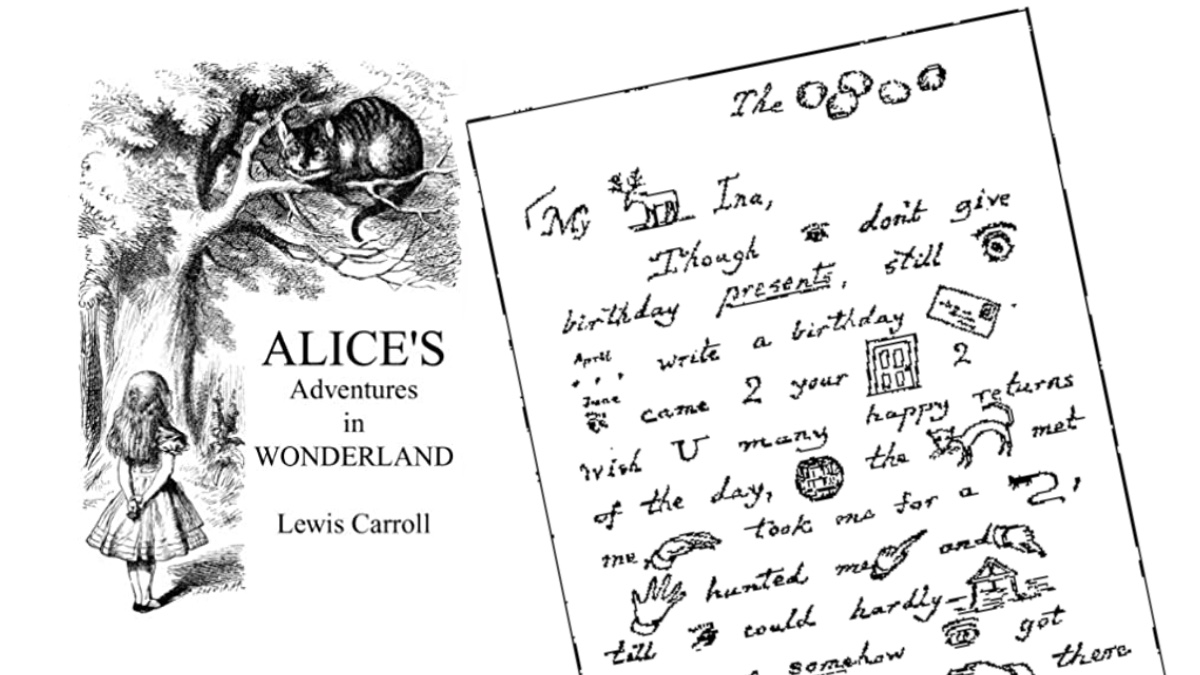 ALICE'S
Adventures
in
WONDERLAND
Lewis Carroll
The
My Ina,
Though don't give
birthday presents, still
April write a birthday
June came 2 your 2
wish U many happy returns
of the day, the met
me, took me for a ,
hunted me and
till could hardly-
somehow got
there